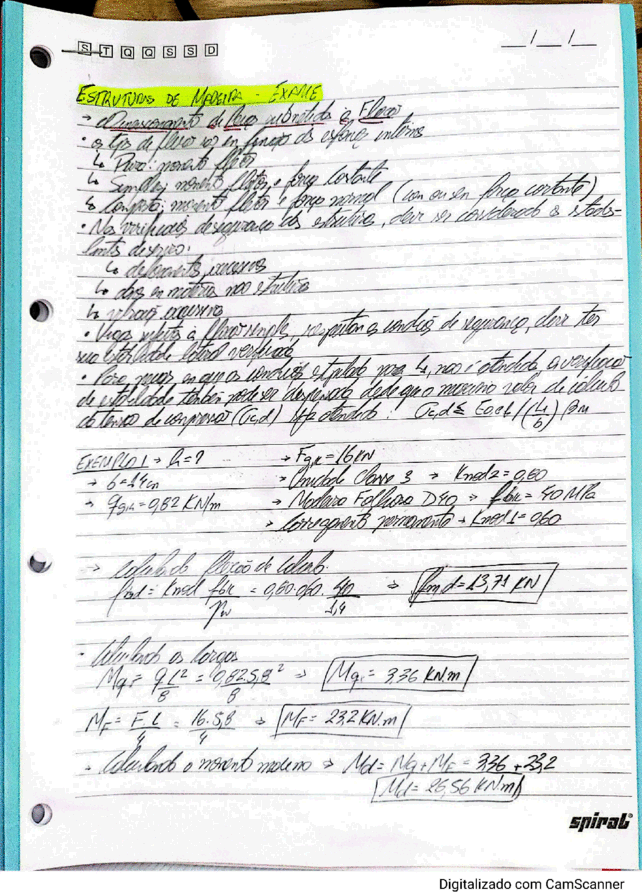 S T Q Q S S D
__/__/__
ESTRUTURAS DE MADEIRA - EXAME
→ Dimensionamento de peças submetidas à Flexão
• os tipos de flexão são em função dos esforços internos
↳ Pura: momento fletor
↳ Simples: momento fletor e força cortante
↳ Composta: momento fletor e força normal (com ou sem força cortante)
• Nas verificações de segurança das estruturas, deve ser considerado os estados-
limites de serviço:
↳ deformações excessivas
↳ danos em materiais não estruturais
↳ vibrações excessivas
• Vigas sujeitas à flexão simples, respeitam a condição de segurança, deve ter
sua estabilidade lateral verificada
• Para peças em que as condições estipuladas para L1, não é atendida, a verificação
de estabilidade também pode ser dispensada, desde que o máximo valor de cálculo
da tensão de compressão (σc,d) seja atendido: σc,d ≤ E0,ef / (L1/b) βm
EXEMPLO 1 → h=?
→ b=14cm
→ qgk=0,82 KN/m
→ Fgk=16KN
→ Umidade Classe 3 → Kmod2=0,80
→ Madeira Folhosa D40 → fbk=40 MPa
→ Carregamento permanente → Kmod1=0,60
→ Calculando flexão de cálculo.
fmd = Kmod fbk/γw = 0,80.0,60. 40/1,4 → fm,d=13,71 KN
• Calculando as cargas
Mq = q.l²/8 = 0,82.5,8²/8 → Mq = 3,36 KN.m
MF = F.l/4 = 16.5,8/4 → MF = 23,2 KN.m
• Calculando o momento máximo → Md = Mq+MF = 3,36 + 23,2
Md = 26,56 KN.m
spiral®
Digitalizado com CamScanner